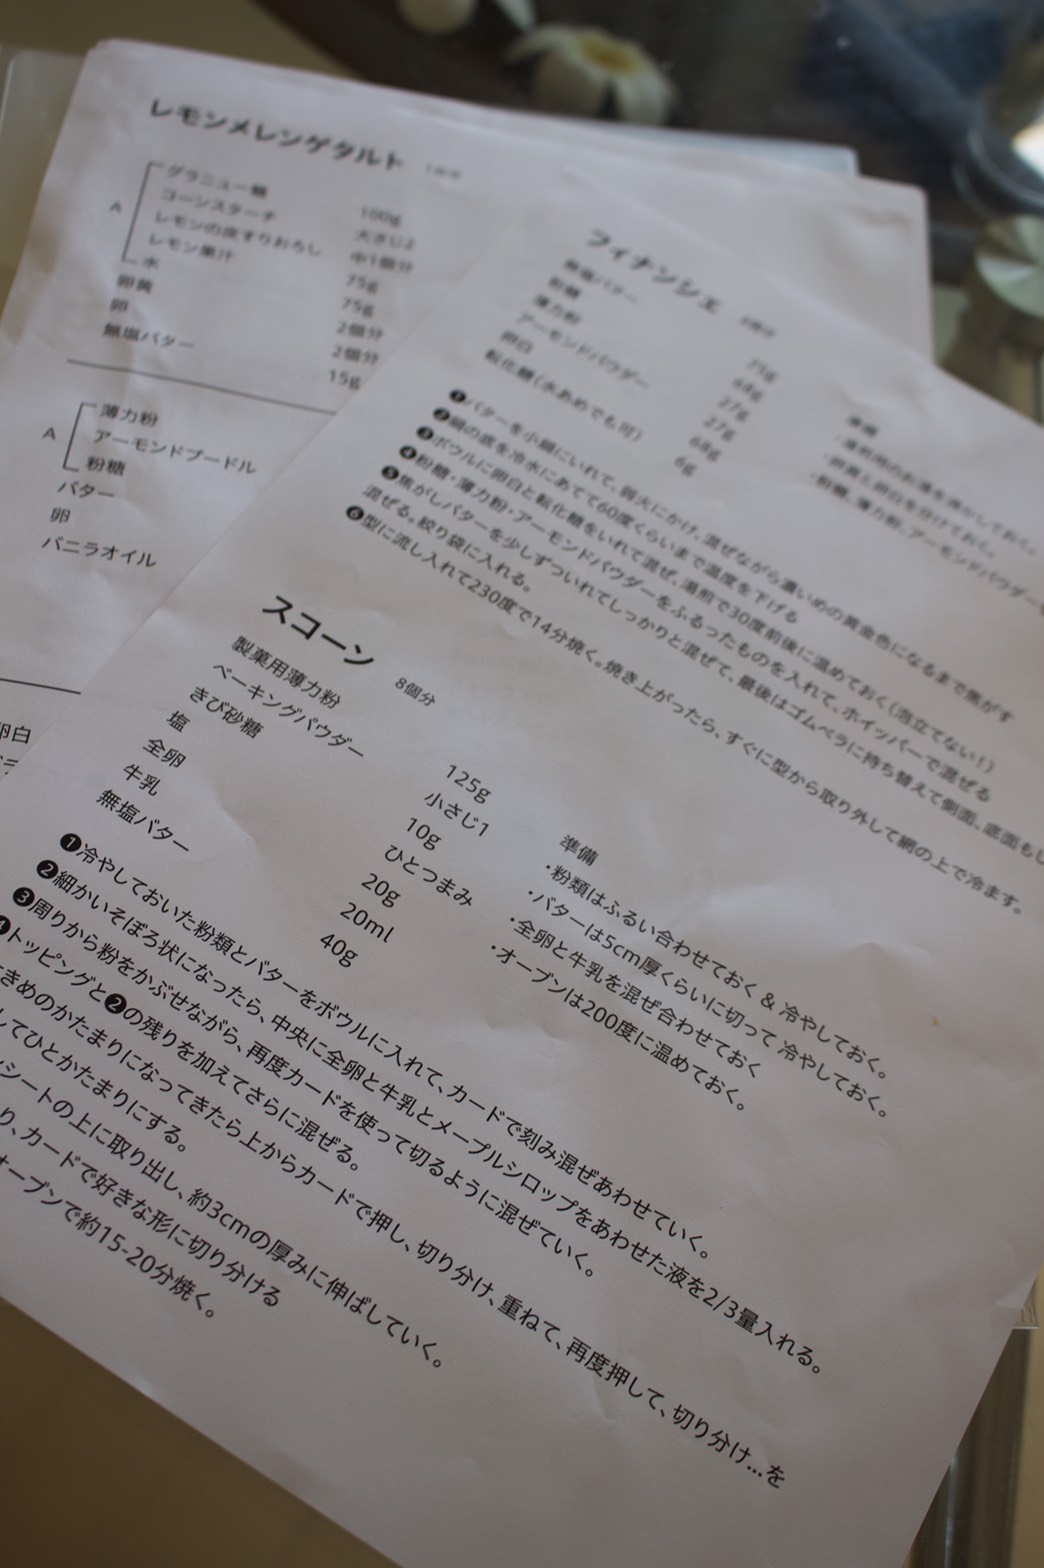 レモンメレンゲタルト
A
グラニュー糖 100g
コーンスターチ 大さじ2
レモンの皮すりおろし 中1個分
レモン果汁 75g
水 75g
卵黄 2個分
卵 2個分
無塩バター 15g
A
薄力粉
アーモンドプードル
粉糖
バター
卵
バニラオイル
卵白
フィナンシェ
無塩バター 75g
粉糖
薄力粉 27g
アーモンドパウダー 27g
卵白
転化糖(水あめでも可) 6g
準備
❶バターを小鍋にいれて、弱火にかけ、混ぜながら濃いめの黄金色になるまで焦がす
❷鍋の底を冷水にあてて60度くらいまで温度を下げる
❸ボウルに卵白と転化糖をいれて混ぜ、湯煎で30度前後に温めておく(泡立てない!)
❹粉糖・薄力粉・アーモンドパウダーをふるったものを入れて、ホイッパーで混ぜる
❺焦がしバターを少しずついれてしっかりと混ぜて、最後はゴムベラに持ち替えて側面、底面もし
混ぜる。絞り袋に入れる。
❻型に流し入れて230度で14分焼く。焼き上がったら、すぐに型から取り外して網の上で冷ます。
スコーン 8個分
製菓用薄力粉 125g
ベーキングパウダー 小さじ1
きび砂糖 10g
塩 ひとつまみ
全卵 20g
牛乳 20ml
無塩バター 40g
準備
・粉類はふるい合わせておく & 冷やしておく。
・バターは5cm厚くらいに切って 冷やしておく。
・全卵と牛乳を混ぜ合わせておく
・オーブンは200度に温めておく。
❶冷やしておいた粉類とバターをボウルに入れて、カードで刻み混ぜあわせていく。
❷細かいそぼろ状になったら、中央に全卵と牛乳とメープルシロップをあわせた液を2/3量入れる。
❸周りから粉をかぶせながら、再度カードを使って切るように混ぜていく。
❹トッピングと❷の残りを加えてさらに混ぜる。
きめのかたまりになってきたら上からカードで押し、切り分け、重ねて、再度押して、切り分け...を
してひとかたまりにする。
シートの上に取り出し、約3cmの厚みに伸ばしていく。
り、カードで好きな形に切り分ける
オーブンで約15-20分焼く。